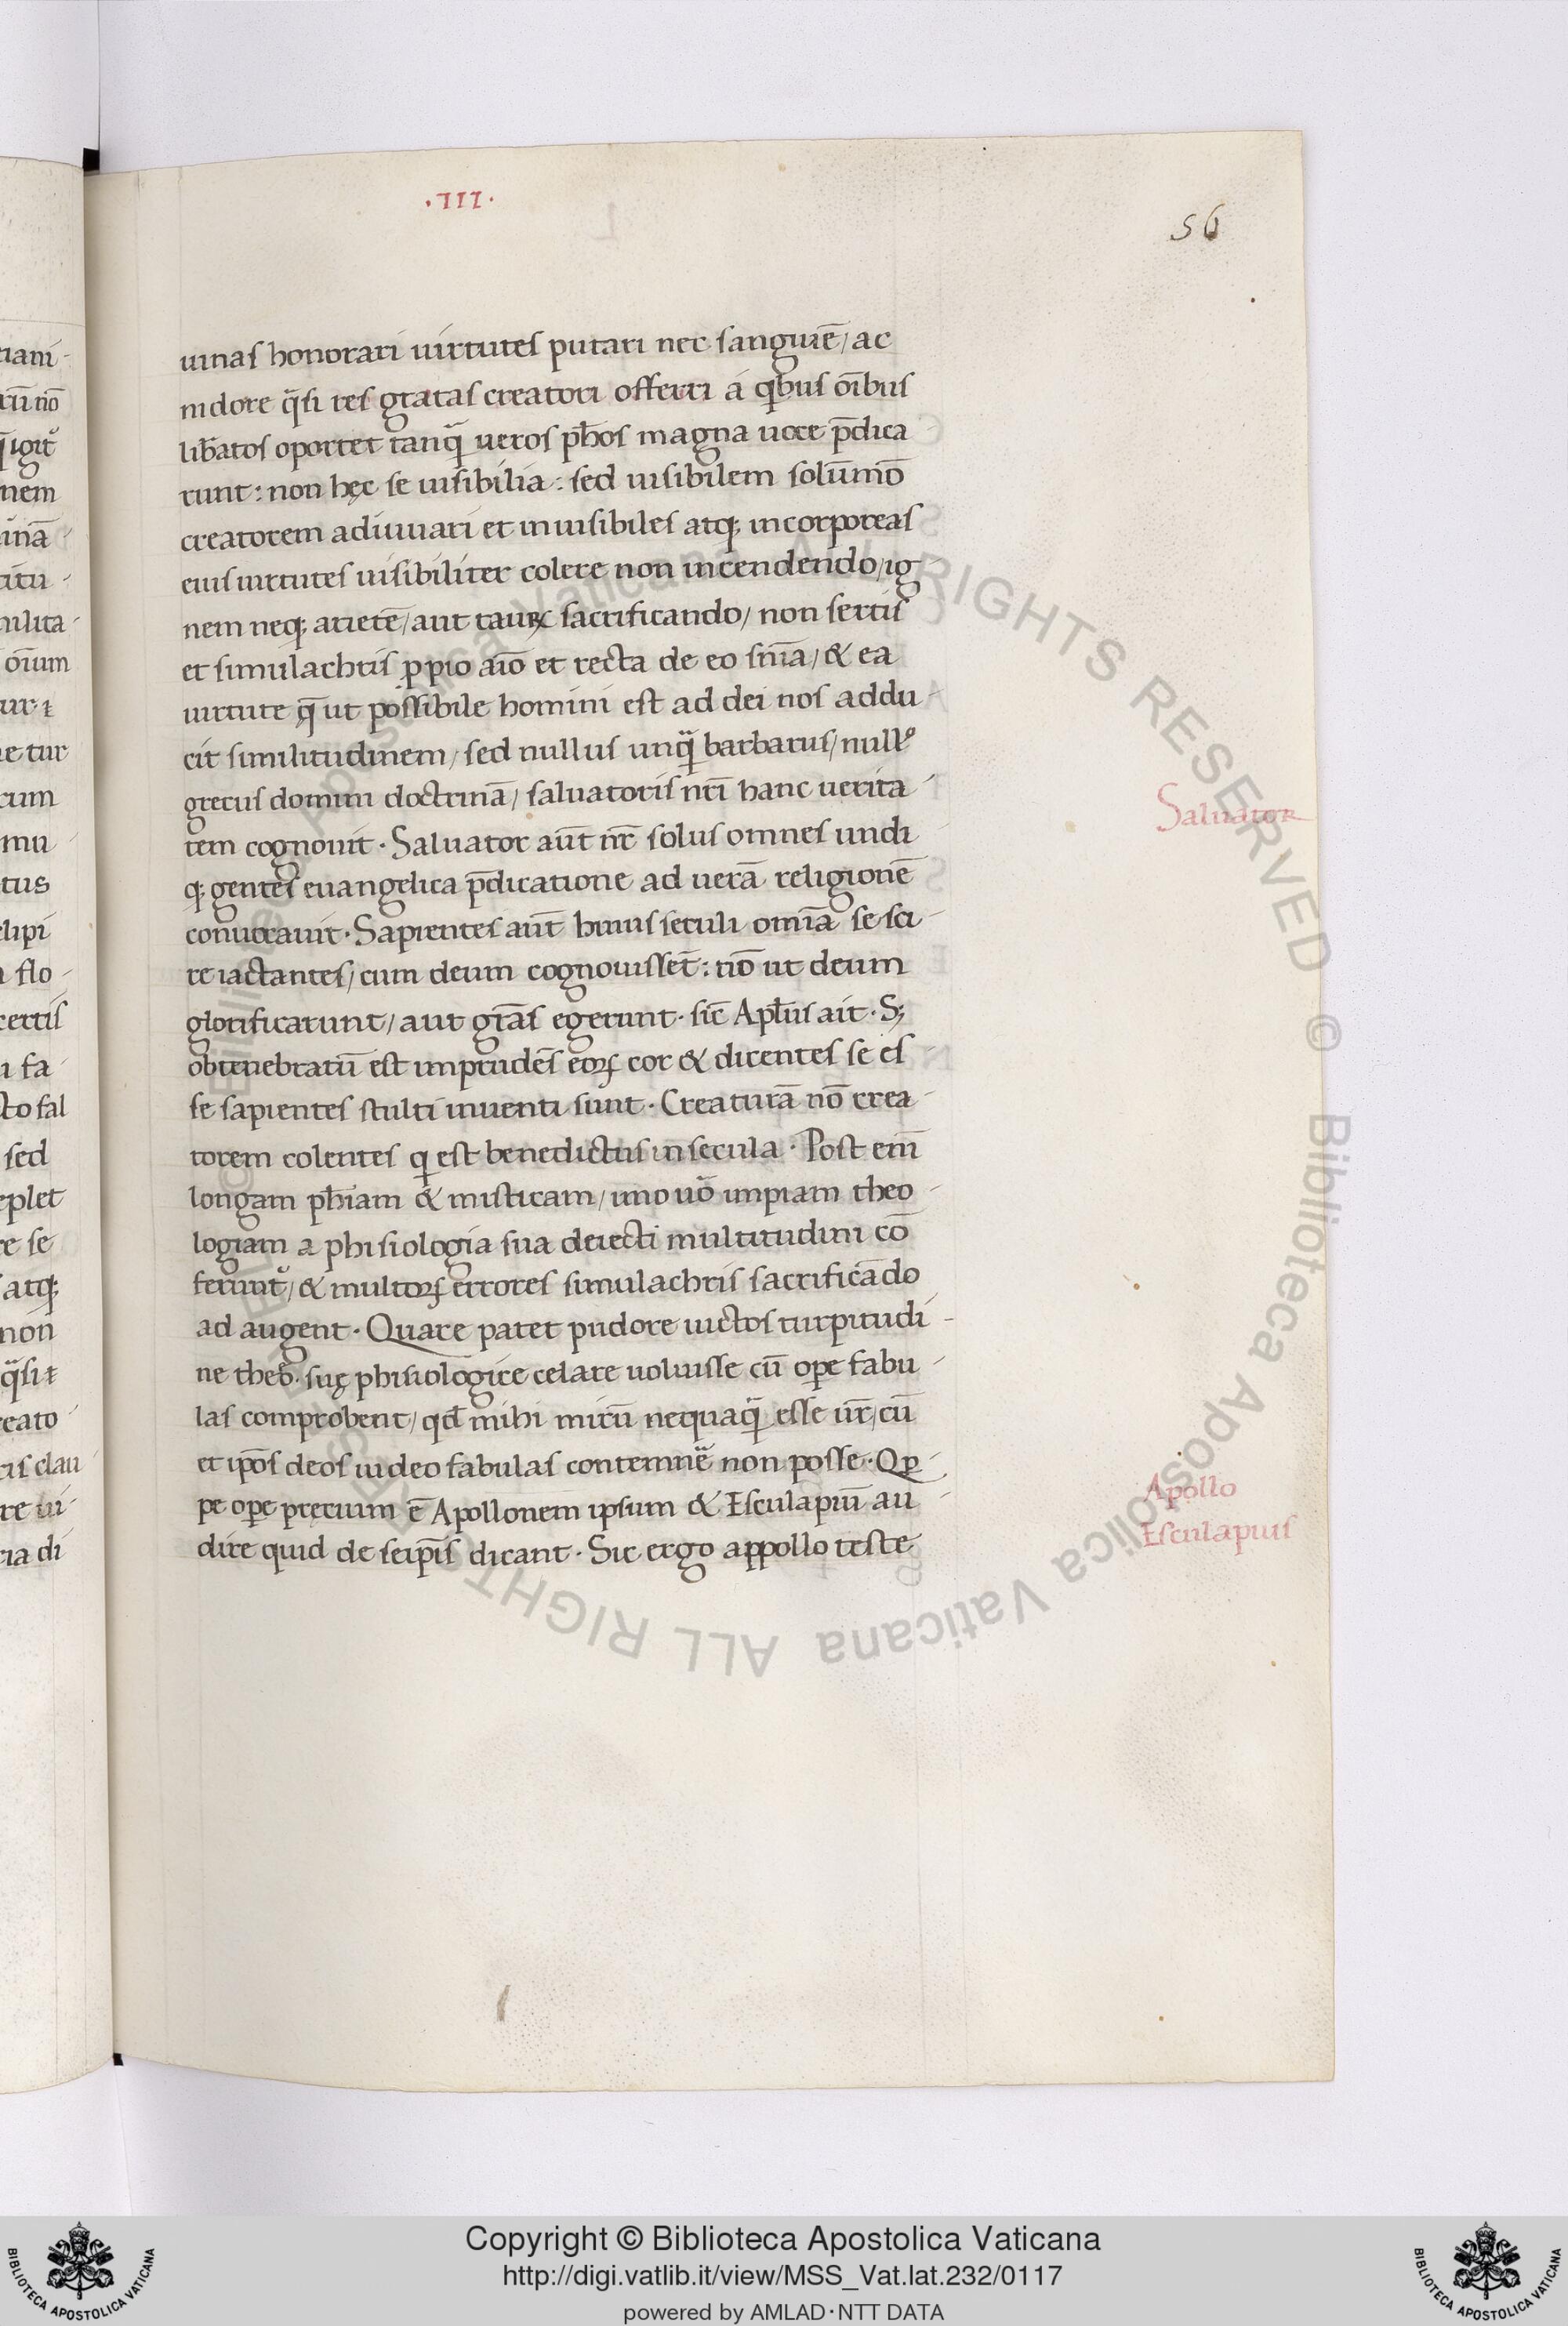 ·III·
56
uinas honorari uirtutes putari nec sanguinē/ ac
nidore q̄si res gratas creatori offerri á qbus oībus
lib̄atos oportet tanq̄ ueros ph̄os magna uoce p̄dica
runt: non hęc se uisibilia: sed uisibilem solūmō
creatorem adiuuari et inuisibiles atq; incorporeas
eius uirtutes uisibiliter colere non incendendo/ ig
nem neq; arietē/ aut tauꝝ sacrificando/ non sertis
et simulachris ꝓpio aīo et recta de eo sn̄ia/ & ea
uirtute q̄ ut possibile homini est ad dei nos addu-
cit similitudinem/ sed nullus unq̄ barbarus/ nullꝰ
grecus domini doctrinā/ saluatoris nr̄i hanc uerita-
tem cognouit· Saluator aūt nr̄ solus omnes undi-
q; gentes euangelica p̄dicatione ad uerā religionē
conuocauit· Sapientes aūt huius seculi omīa se sci-
re iactantes/ cum deum cognouissēt: nō ut deum
glorificarunt/ aut gr̄as egerunt· sic̄ Apl̄us ait· S;
obtenebratū est imprudēs eoꝝ cor & dicentes se es
se sapientes stulti inuenti sunt· Creaturā nō crea-
torem colentes q est benedictus in secula· Post em̄
longam ph̄iam & misticam/ imo uō impiam theo-
logiam a phisiologia sua deiecti multitudini cō
ferunt̉/ & multoꝝ errores simulachris sacrificādo
ad augent· Quare patet pudore uictos turpitudi-
ne theo· suę phisiologice celare uoluisse cū oꝑe fabu-
las comprobent/ qd̄ mihi mirū nequaq̄ esse ur̄/ cū
et ip̄os deos uideo fabulas contemnē non posse· Qp-
pe oꝑe pręcium ē Apollonem ipsum & Esculapiū au-
dire quid de seip̄is dicant· Sic ergo appollo teste
Saluator
Apollo
Esculapius
Copyright © Biblioteca Apostolica Vaticana
http://digi.vatlib.it/view/MSS_Vat.lat.232/0117
powered by AMLAD·NTT DATA